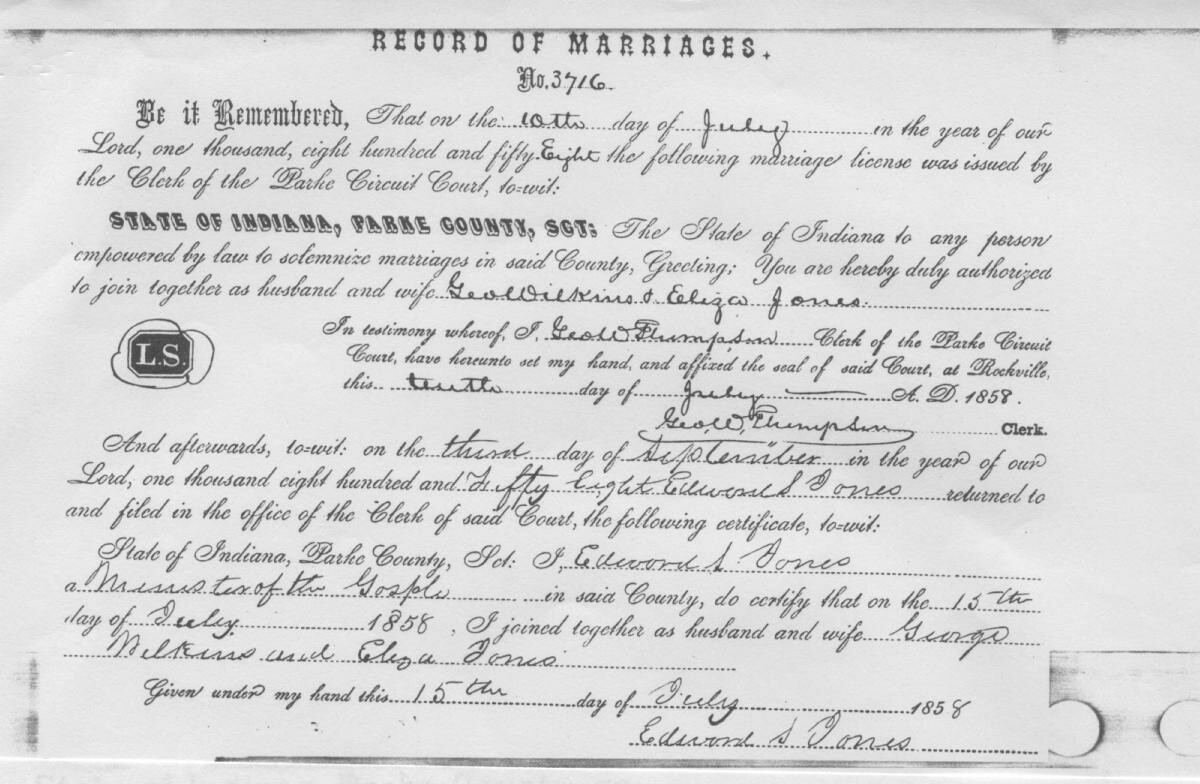 RECORD OF MARRIAGES.
No. 3716.
Be it Remembered, That on the 10th day of July in the year of our
Lord, one thousand, eight hundred and fifty Eight the following marriage license was issued by
the Clerk of the Parke Circuit Court, to=wit:
STATE OF INDIANA, PARKE COUNTY, SCT: The State of Indiana to any person
empowered by law to solemnize marriages in said County, Greeting; You are hereby duly authorized
to join together as husband and wife Geo Wilkins & Eliza Jones
In testimony whereof, I, Geo W Thumpson Clerk of the Parke Circuit
L.S.
Court, have hereunto set my hand, and affixed the seal of said Court, at Rockville,
this tenth day of July A. D. 1858.
Geo W. Thumpson Clerk.
And afterwards, to=wit: on the third day of September in the year of our
Lord, one thousand eight hundred and Fifty Eight Edward S Jones returned to
and filed in the office of the Clerk of said Court, the following certificate, to=wit:
State of Indiana, Parke County, Sct: I, Edward S Jones
a Minister of the Gosple in said County, do certify that on the 15th
day of July 1858, I joined together as husband and wife George
Wilkins and Eliza Jones
Given under my hand this 15th day of July 1858
Edward S Jones